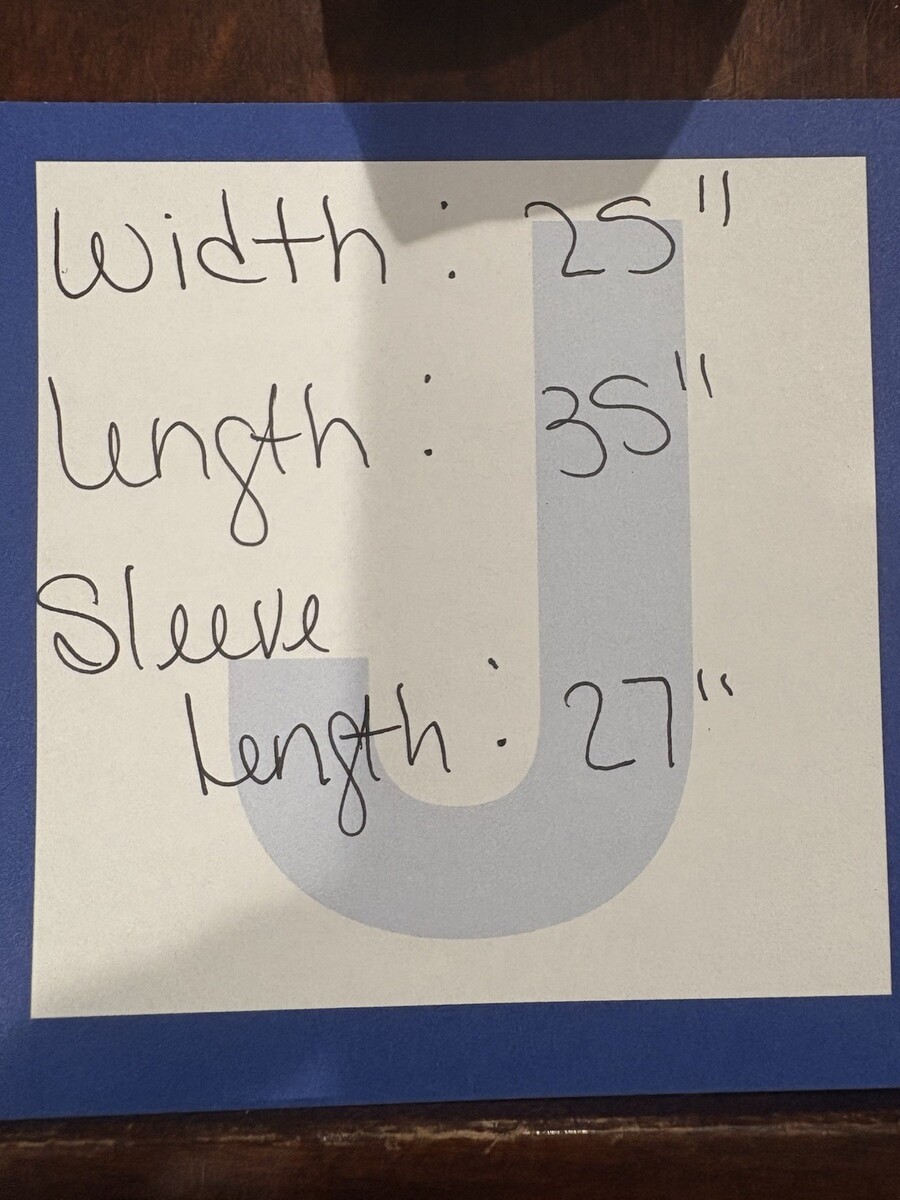 Width: 25"
Length: 35"
Sleeve
Length: 27"
J